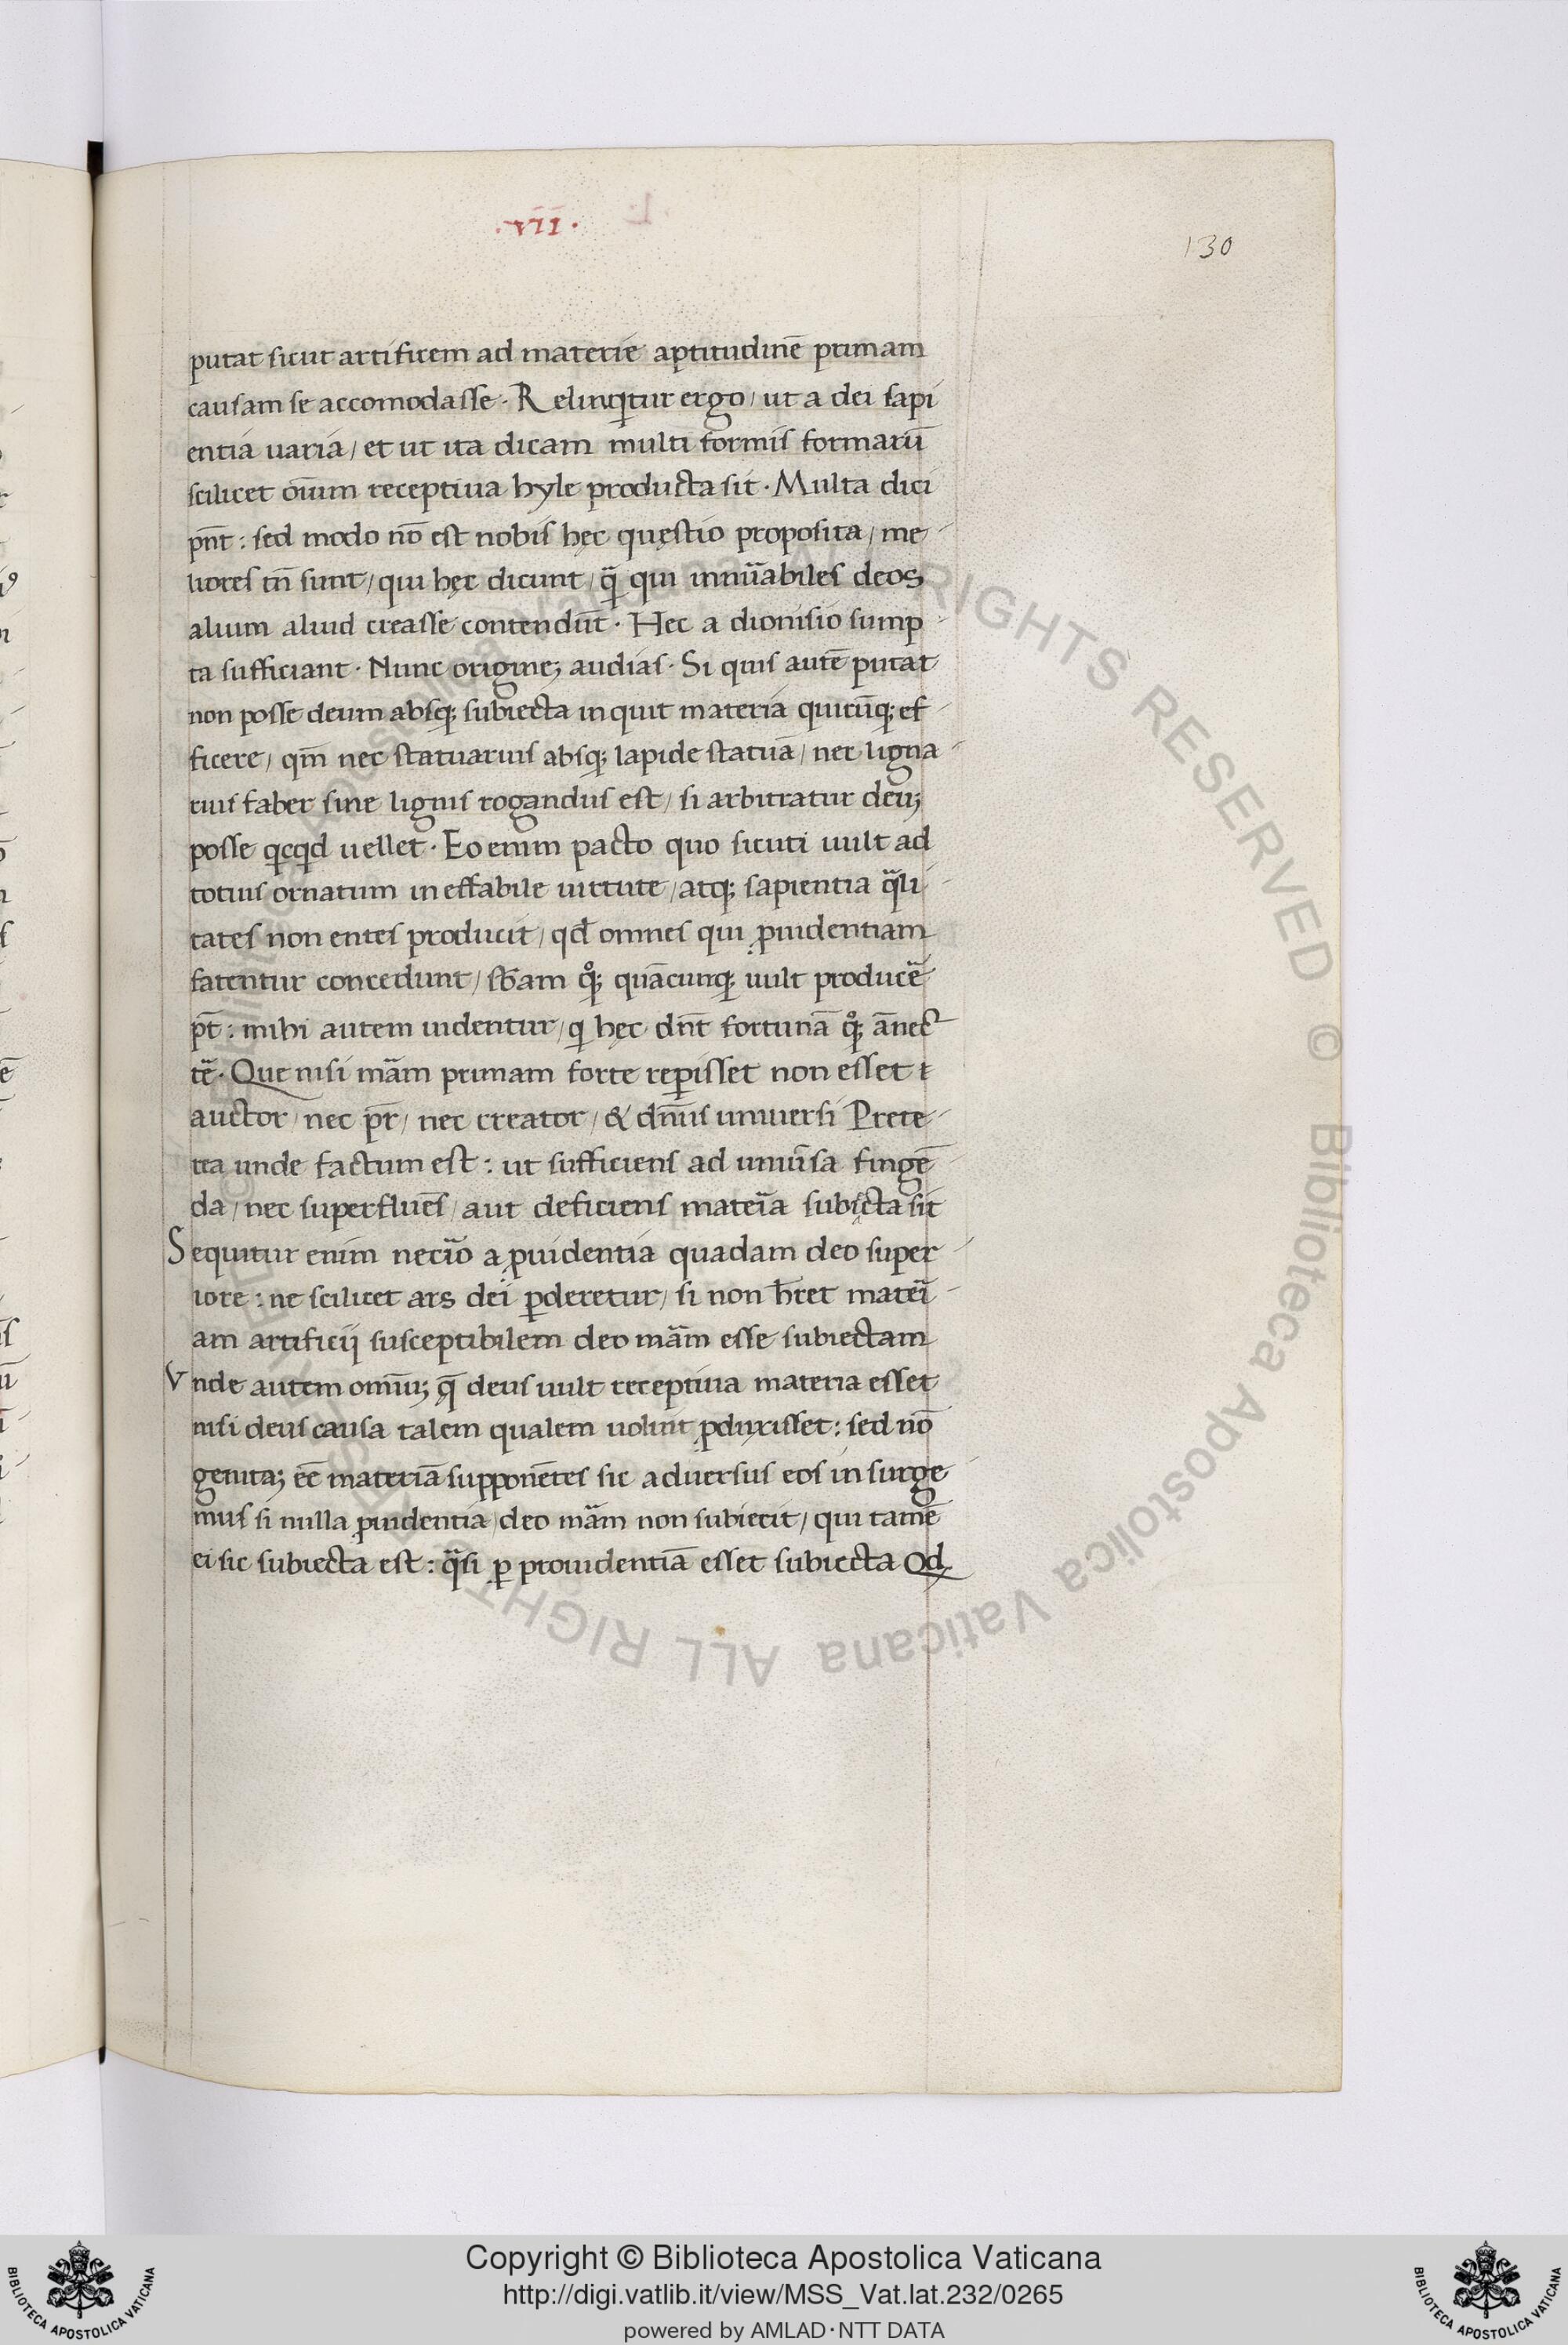 ·VII·
130
putat sicut artificem ad materie aptitudinē primam
causam se accomodasse · Relinqͥtur ergo / ut a dei sapi
entia uaria / et ut ita dicam multi formis formarū
scilicet oīum receptiua hyle producta sit · Multa dici
pn̄t : sed modo nō est nobis hęc quęstio proposita / me
liores tn̄ sunt / qui hęc dicunt / qᷓ qui innūabiles deos
alium aliud creasse contendūt · Hec a dionisio sump
ta sufficiant · Nunc origineꝫ audias · Si quis autē putat
non posse deum absqꝫ subiecta inquit materia quicūqꝫ ef
ficere / qm̄ nec statuarius absqꝫ lapide statuā / nec ligna
rius faber sine lignis rogandus est / si arbitratur deuꝫ
posse qͥcqͥd uellet · Eo enim pacto quo sicuti uult ad
totius ornatum in effabile uirtute / atqꝫ sapientia qᷓli
tates non entes producit / qd̄ omnes qui ꝓuidentiam
fatentur concedunt / sb̄am qͦꝫ quācunqꝫ uult producē
pt̄ : mihi autem uidentur / qͥ hęc dn̄t fortunā qͦꝫ ānec
tē · Que nisi mᷓam primam forte reꝑisset non esset
auctor / nec pr̄ / nec creator / & dn̄us uniuersi Prete
rea unde factum est : ut sufficiens ad uniūsa fingē
da / nec superfluēs / aut deficiens matēia subiecta sit
Sequitur enim necīo a ꝓuidentia quadam deo super
iore : ne scilicet ars dei ꝑderetur / si non h̄ret matēi
am artificij susceptibilem deo mᷓam esse subiectam
Vnde autem omniū; q̄ deus uult receptiua materia esset
nisi deus causa talem qualem uoluit ꝓduxisset : sed nō
genitaꝫ eē materiā supponētes sic aduersus eos in surge
mus si nulla ꝓuidentia / deo mᷓam non subiecit / qui tamē
ei sic subiecta est : qᷓsi ꝑ prouidentiā esset subiecta Qd
Copyright © Biblioteca Apostolica Vaticana
http://digi.vatlib.it/view/MSS_Vat.lat.232/0265
powered by AMLAD·NTT DATA
BIBLIOTECA APOSTOLICA VATICANA
BIBLIOTECA APOSTOLICA VATICANA
© Biblioteca Apostolica Vaticana ALL RIGHTS RESERVED © Biblioteca Apostolica Vaticana ALL RIGHTS RESERVED